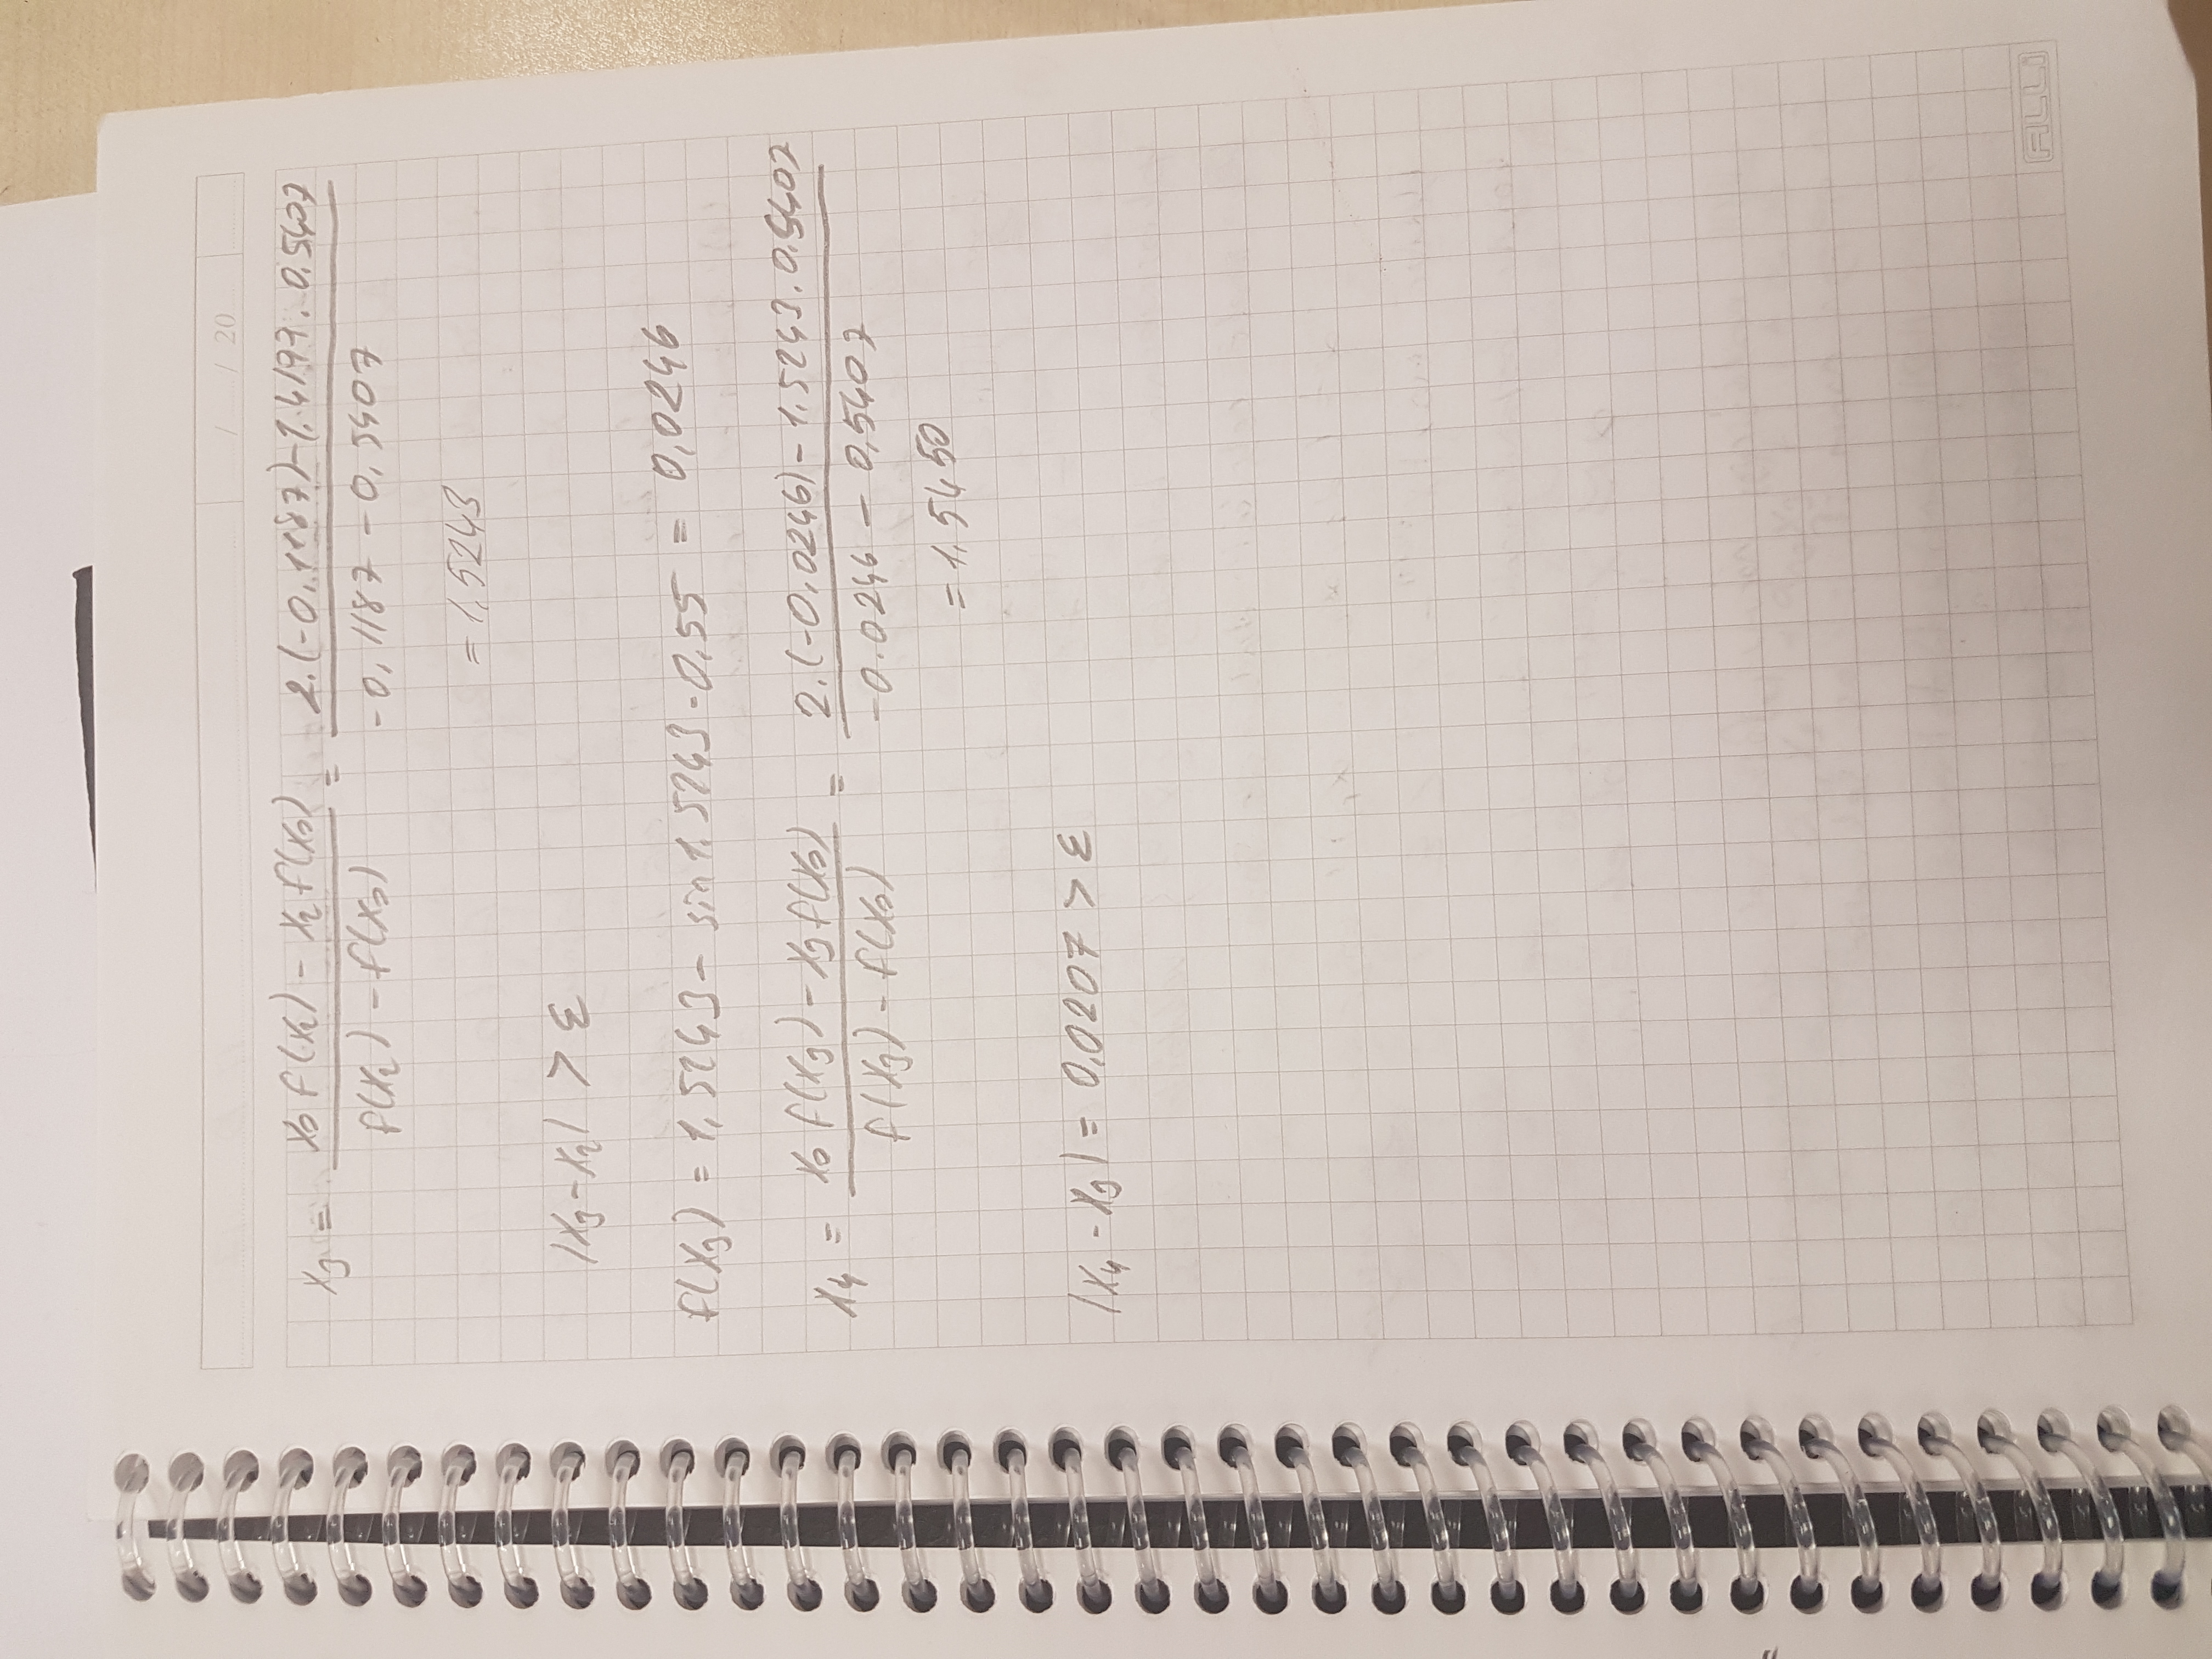 / / 20
x₃ = (x₀ f(x₂) - x₂ f(x₀)) / (f(x₂) - f(x₀)) = (2.(-0,1187) - 1.4197. 0.5407) / (-0,1187 - 0,5407)
= 1,5243
|x₃ - x₂| > ε
f(x₃) = 1,5243 - sin 1.5243 - 0.55 = 0,0246
x₄ = (x₀ f(x₃) - x₃ f(x₀)) / (f(x₃) - f(x₀)) = (2.(-0,0246) - 1.5243. 0.5407) / (-0.0246 - 0,5407)
= 1.5450
|x₄ - x₃| = 0,0207 > ε
ALLi